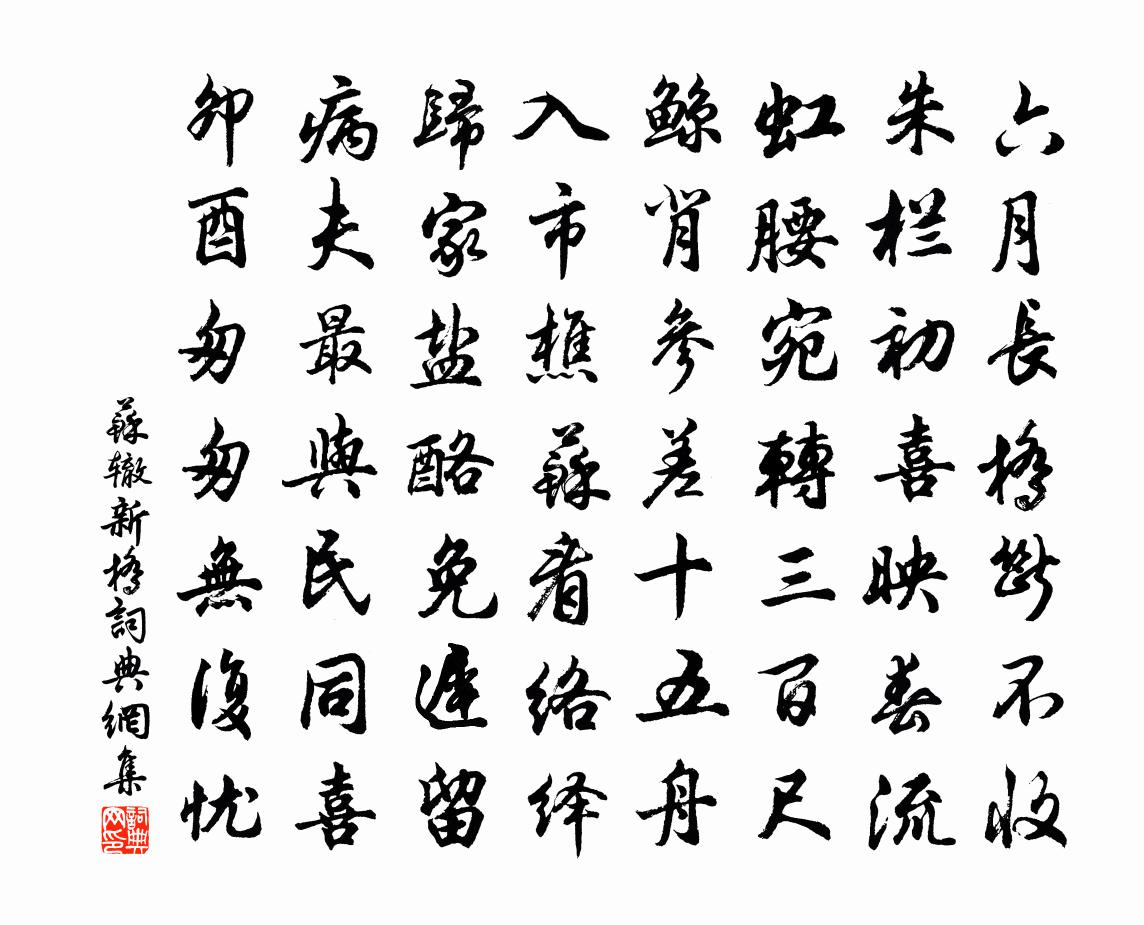 六月長橋斷不收
朱栏初喜映春流
虹腰宛轉三百尺
鲸背參差十五舟
入市樵蘇看络绎
歸家盐酪免遲留
病夫最與民同喜
卯酉匆匆無復忧
蘇辙新橋詞典網集
詞典网印